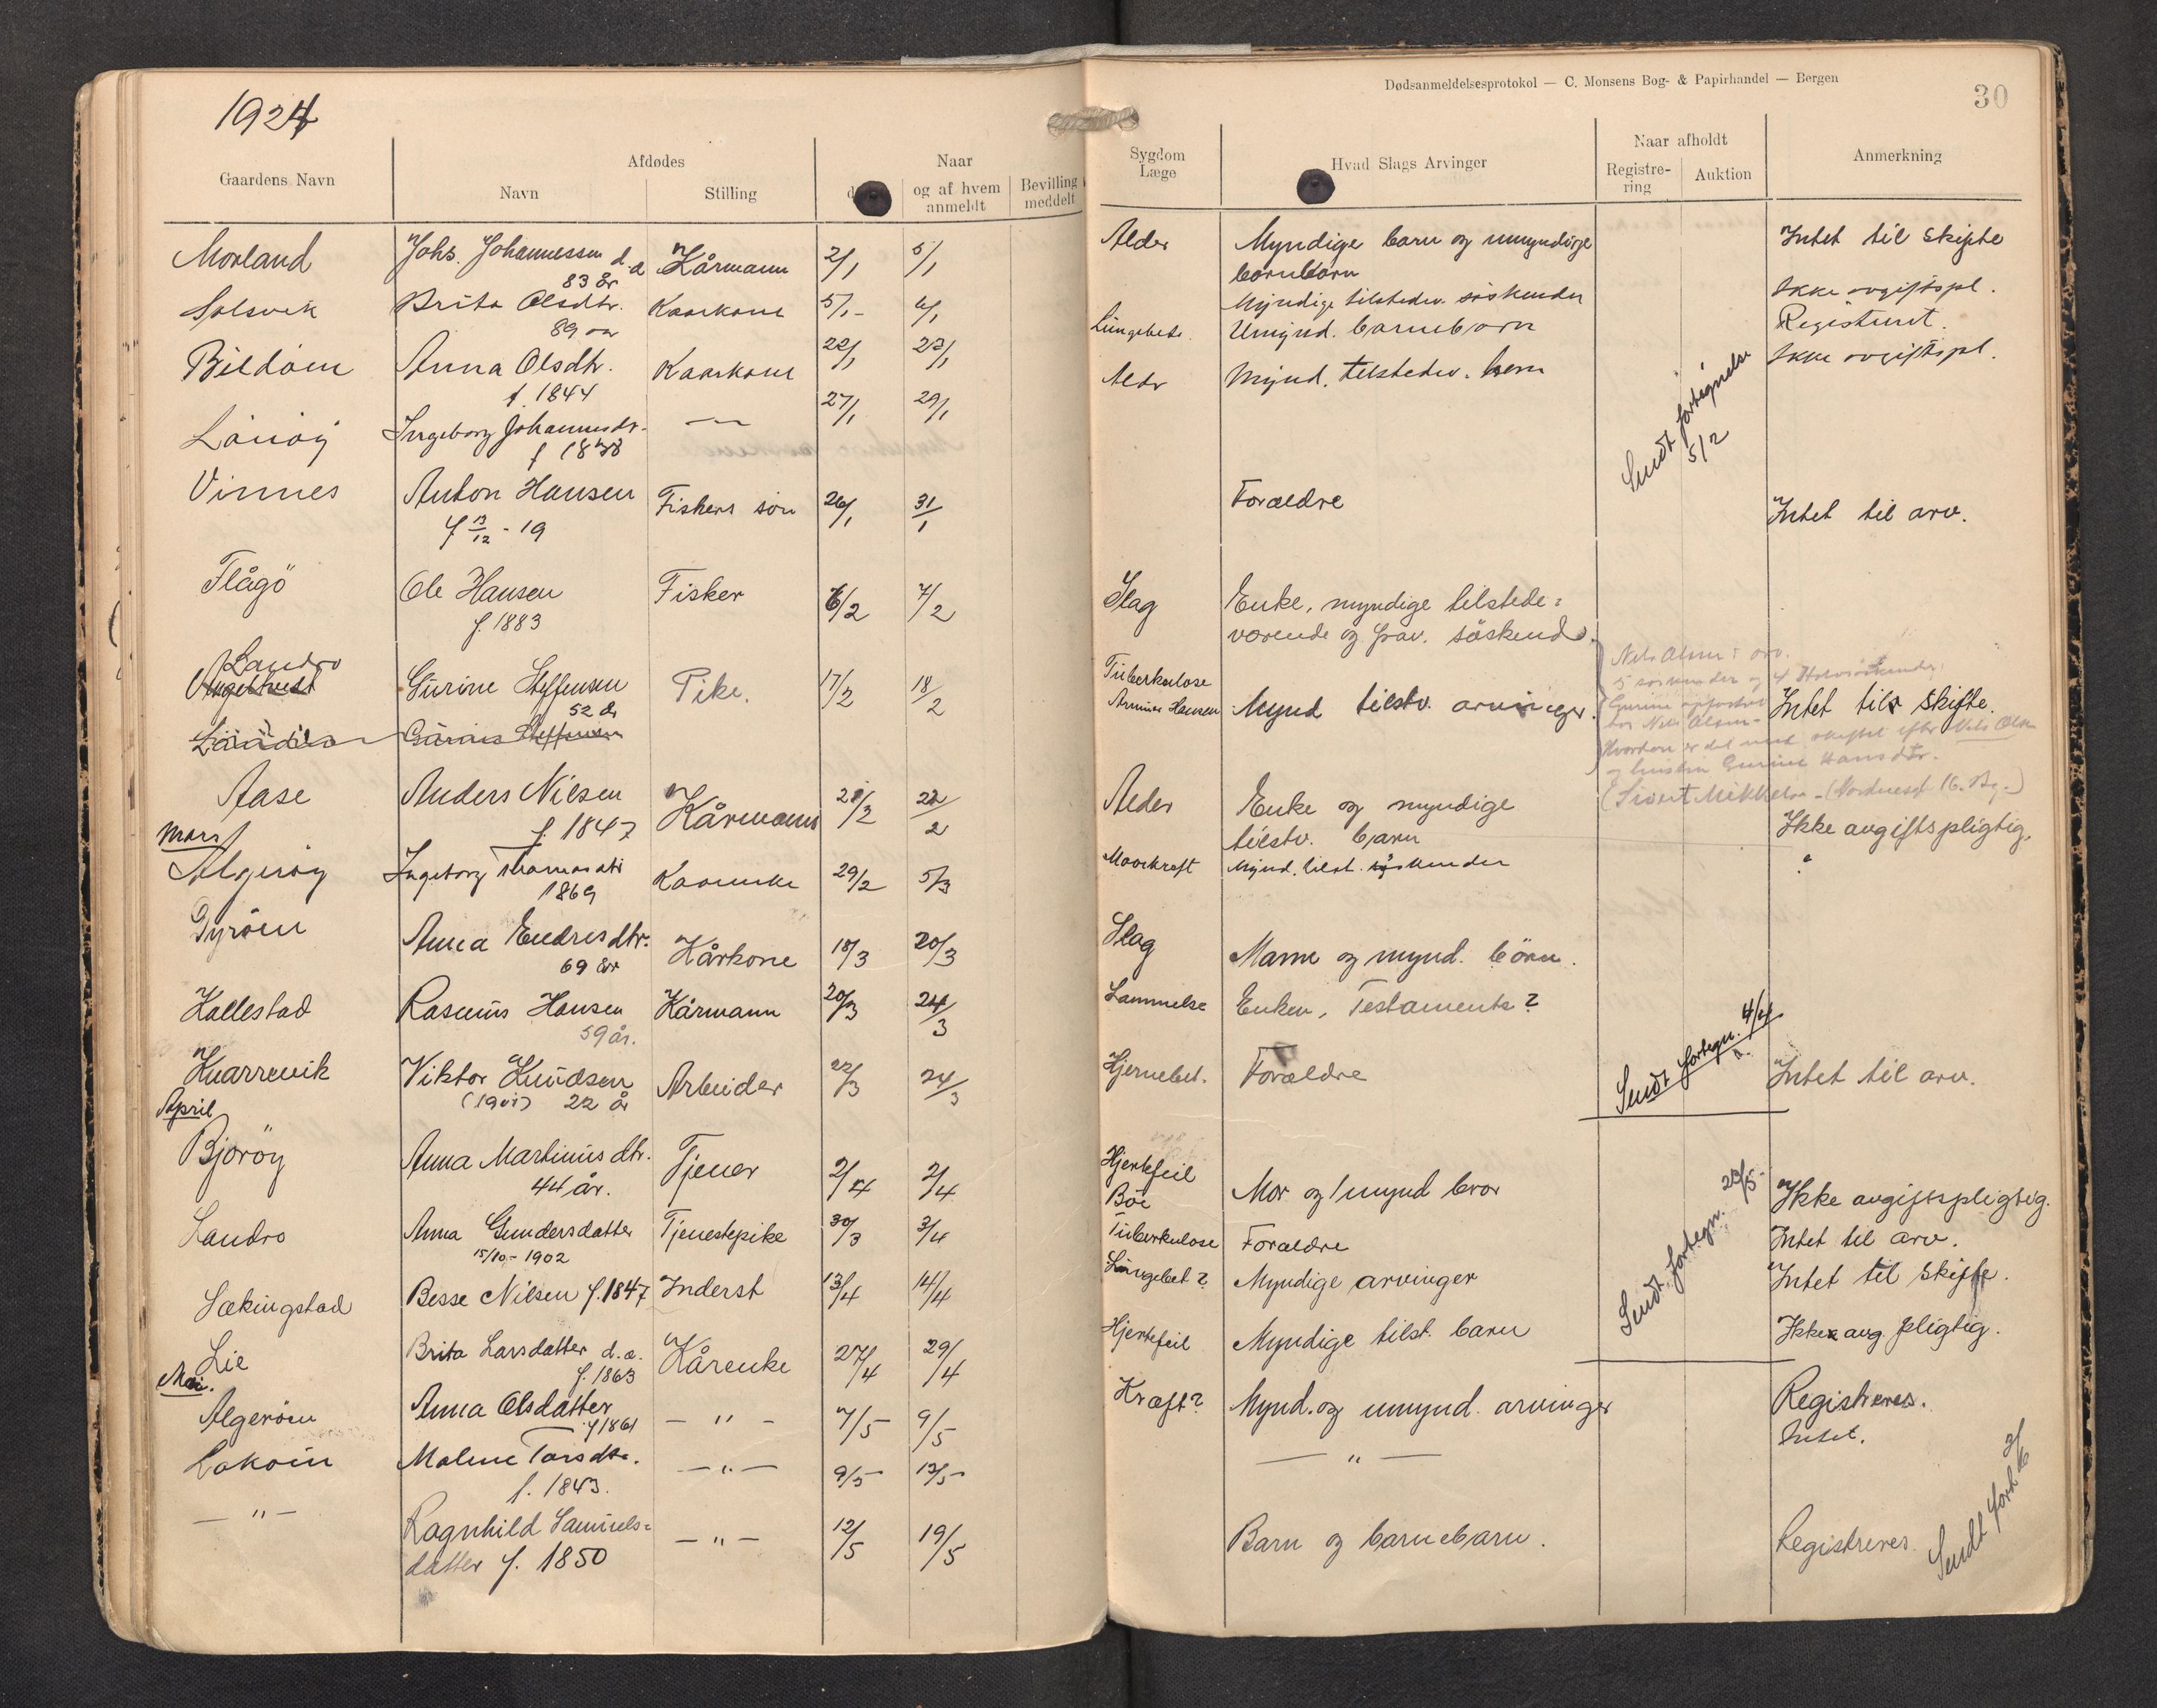 1924
Dødsanmeldelsesprotokol — C. Monsens Bog- & Papirhandel — Bergen
30
Gaardens Navn
Afdødes
Navn
Stilling
Naar
og af hvem anmeldt
Bevilling meddelt
Sygdom Læge
Hvad Slags Arvinger
Naar afholdt
Registre-ring
Auktion
Anmerkning
Morland Johs. Johannessen d.a. Kårmann 2/1 5/1 Alder Myndige barn og umyndige Intet til skifte
83 år barnebarn
Solsvik Brita Olsdtr. Kaarkone 5/1 6/1 Myndige tilstedev. søskender Ikke avgiftspl.
89 aar Lungebet. Umynd. barnebarn Registrert.
Bildøen Anna Olsdtr. Kaarkone 22/1 23/1 Aldr Mynd. tilstedev. barn Ikke avgiftspl.
f. 1844
Lønøy Ingeborg Johannesdr. — 27/1 29/1
Sendt fortegnelse
5/2
Vinnes Anton Hansen Fiskers søn 26/1 31/1 Forældre Intet til arv.
f 13/12 - 19
Flågö Ole Hansen Fisker 6/2 7/2 Slag Enke, myndige tilstede=
f. 1883 værende og frav. söskende.
Landro
Gurine Steffensen Pike. 17/2 18/2 Tuberkulose
52 år Hansen Mynd tilstv. arvinger. Intet til skifte.
Nels Olsen
5 søskender og 4 Halvsøskender
Gurine
hos Nils Olsen-
Hvordan er det med skiftet efter Nels Olsen
og hustru Gurine Hansdtr.
Gurine Steffensen
Aase Anders Nilsen Kårmann 22/2 Alder Enke og myndige
f. 1847 tilstv. barn Ikke avgiftspligtig.
Mars
Algerøy Ingeborg Thomasdtr Kaarenke 29/2 5/3 Mavekraft Mynd. tilst. søskender "
1869
Tyrøen Anna Endresdtr. Kårkone 18/3 20/3 Slag Mann og mynd. börn.
69 år
Kallestad Rasmus Hansen Kårmann 20/3 24/3 Lammelse Enken, Testamente?
59 år.
Sendt fortegn. 4/4
Knarrevik Viktor Knudsen Arbeider 22/3 24/3 Hjernebet. Forældre Intet til arv.
22 år
April
Bjorøy Anna Martinusdtr. Tjener 2/4 2/4 Hjertefeil Mor og 1 mynd bror Ikke avgiftspligtig.
44 år. Böe
Landro Anna Gundersdatter Tjenestepike 30/3 3/4 Tuberkulose Forældre Intet til arv.
15/10 - 1902
Sekingstad Besse Nilsen f. 1847 Inderst 13/4 14/4 Lungebet? Myndige arvinger Intet til skifte.
Sendt fortegn. 23/5
Lie Brita Larsdatter d.a. Kårenke 27/4 29/4 Hjertefeil Myndige tilst. barn Ikke avg. pligtig.
f. 1863
Mai.
Algerøen Anna Olsdatter — " — 7/5 9/5 Kræft? Mynd. og umynd. arvinger Registreres.
f 1861
Lokøin Malene Torsdtr. — " — 9/5 13/5 — " — Intet.
f. 1843.
— " — Ragnhild Samuels= — " — 12/5 19/5 Barn og barnebarn. Registreres
datter f. 1850
Sendt fort